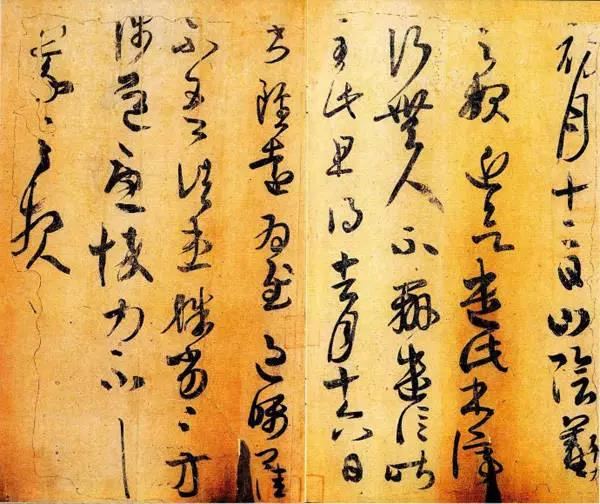 初月十二日山陰羲
之報近欲遣此書停
行無人不辨遣信昨
至此且得去月十六日
書雖遠為慰過囑卿佳
不吾諸患殊劣殊劣方
涉道憂悴力不具
羲之報